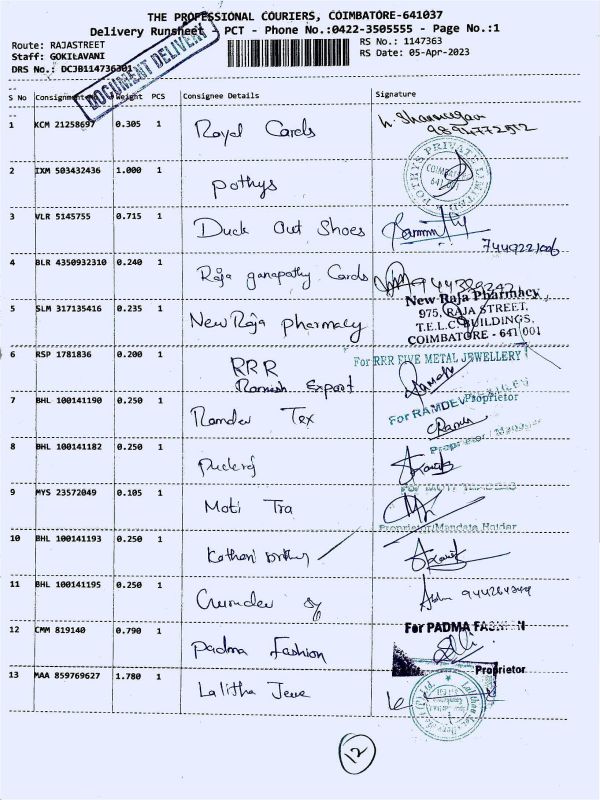 THE PROFESSIONAL COURIERS, COIMBATORE-641037
Delivery Runsheet - PCT - Phone No.:0422-3505555 - Page No.:1
Route: RAJASTREET RS No.: 1147363
Staff: GOKILAVANI RS Date: 05-Apr-2023
DRS No.: DCJB114736301
DOCUMENT DELIVERY
S No Consignment No Weight PCS Consignee Details Signature
1 KCM 21258697 0.305 1 Royal Cards
9894772512
2 IXM 503432436 1.000 1 Pothys
POTHYS PRIVATE LIMITED COIMBATORE 641 001
3 VLR 5145755 0.715 1 Duck Out Shoes
7449221006
4 BLR 4350932310 0.240 1 Raja ganapathy Cards
5 SLM 317135416 0.235 1 New Raja pharmacy
New Raja Pharmacy
975, RAJA STREET,
T.E.L.C. BUILDINGS,
COIMBATORE - 641 001
6 RSP 1781836 0.200 1 RRR
Ramesh Export
For RRR FIVE METAL JEWELLERY
Proprietor
7 BHL 100141190 0.250 1 Ramdev Tex
For RAMDEV
Proprietor/Manager
8 BHL 100141182 0.250 1
9 MYS 23572049 0.105 1 Moti Tra
For MOTI
Proprietor/Mandate Holder
10 BHL 100141193 0.250 1 Kothari
11 BHL 100141195 0.250 1
12 CMM 819140 0.790 1 Padma Fashion
For PADMA FASHION
Proprietor
13 MAA 859769627 1.780 1 Lalitha Jewe
12